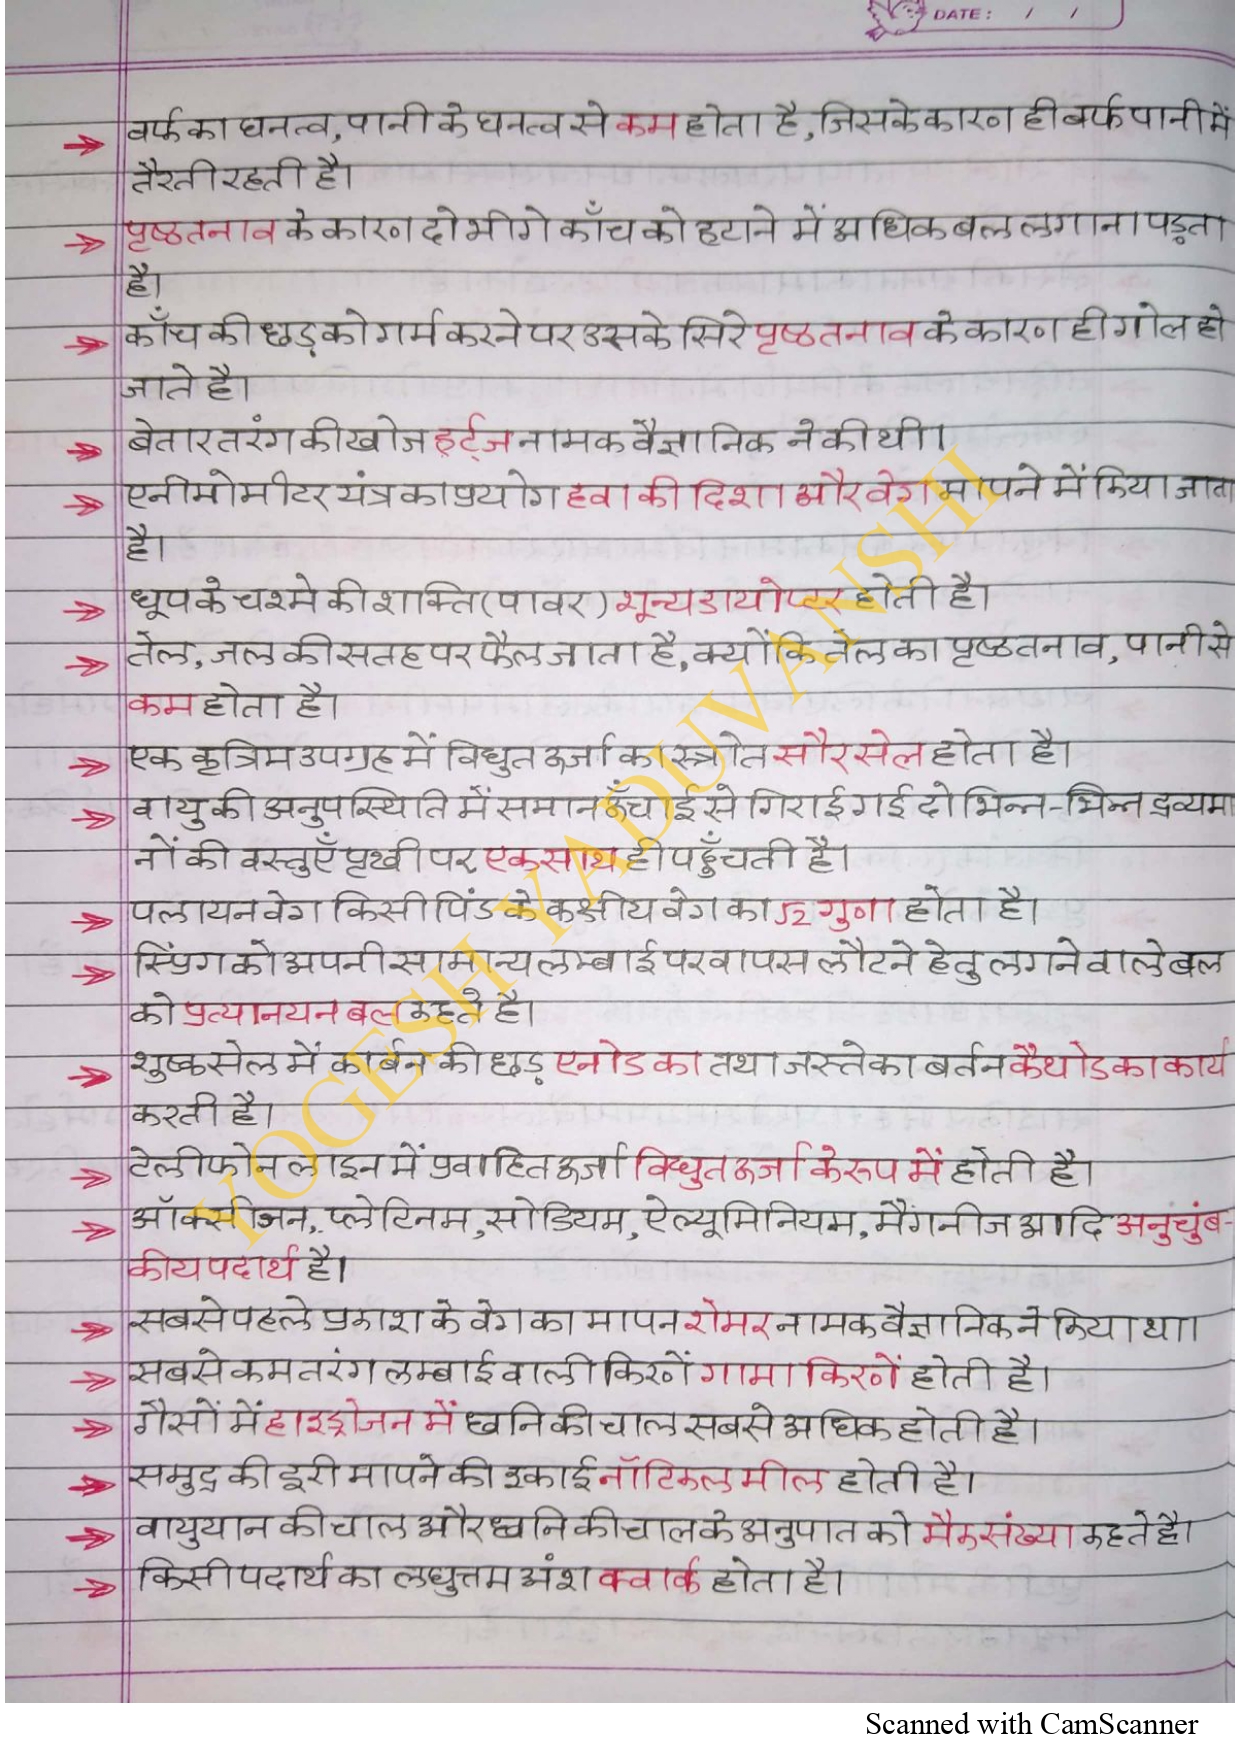 DATE: / /
बर्फ का घनत्व, पानी के घनत्व से कम होता है, जिसके कारण ही बर्फ पानी में
तैरती रहती है।
पृष्ठ तनाव के कारण दो भीगे काँच को हटाने में अधिक बल लगाना पड़ता
है।
काँच की छड़ को गर्म करने पर उसके सिरे पृष्ठ तनाव के कारण ही गोल हो
जाते है।
बेतार तरंग की खोज हर्ट्ज नामक वैज्ञानिक ने की थी।
एनीमोमीटर यंत्र का प्रयोग हवा की दिशा और वेग मापने में किया जाता
है।
धूप के चश्मे की शक्ति (पावर) शून्य डायोप्टर होती है।
तेल, जल की सतह पर फैल जाता है, क्योंकि तेल का पृष्ठ तनाव, पानी से
कम होता है।
एक कृत्रिम उपग्रह में विधुत ऊर्जा का स्त्रोत सौर सेल होता है।
वायु की अनुपस्थिति में समान ऊँचाई से गिराई गई दो भिन्न-भिन्न द्रव्यमा
नों की वस्तुएँ पृथ्वी पर एक साथ ही पहुँचती है।
पलायन वेग किसी पिंड के कक्षीय वेग का √2 गुणा होता है।
स्प्रिंग को अपनी सामान्य लम्बाई पर वापस लौटने हेतु लगने वाले बल
को प्रत्यानयन बल कहते है।
शुष्क सेल में कार्बन की छड़ एनोड का तथा जस्ते का बर्तन कैथोड का कार्य
करती है।
टेलीफोन लाइन में प्रवाहित ऊर्जा विधुत ऊर्जा के रूप में होती है।
ऑक्सीजन, प्लेटिनम, सोडियम, ऐल्यूमिनियम, मैंगनीज आदि अनुचुंब-
कीय पदार्थ है।
सबसे पहले प्रकाश के वेग का मापन रोमर नामक वैज्ञानिक ने किया था।
सबसे कम तरंग लम्बाई वाली किरणें गामा किरणें होती है।
गैसों में हाइड्रोजन में ध्वनि की चाल सबसे अधिक होती है।
समुद्र की दूरी मापने की इकाई नॉटिकल मील होती है।
वायुयान की चाल और ध्वनि की चाल के अनुपात को मैक संख्या कहते है।
किसी पदार्थ का लघुत्तम अंश क्वार्क होता है।
YOGESH YADUVANSHI
Scanned with CamScanner